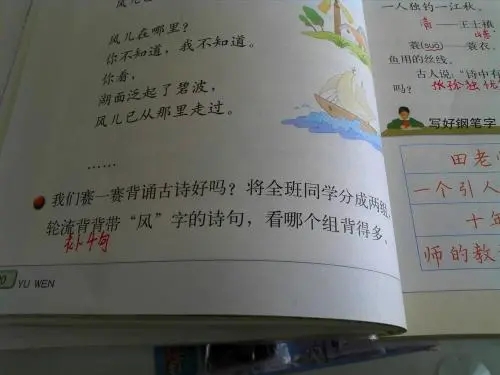 风儿在哪里?
你不知道,我不知道。
你看,
湖面泛起了碧波,
风儿已从那里走过。
……
我们赛一赛背诵古诗好吗?将全班同学分成两组,
轮流背背带“风”字的诗句,看哪个组背得多。
YU WEN
一人独钓一江秋。
清——王士禛
蓑(suō)——蓑衣。
鱼用的丝线。
古人说:“诗中有
吗?
写好钢笔字
田老
一个引人
十年
师的教